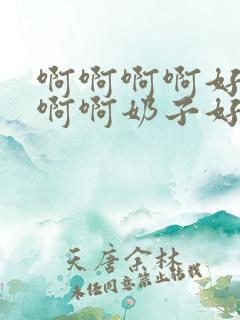 啊啊啊啊好
啊啊奶子好
天唐余林
未经同意禁止转载